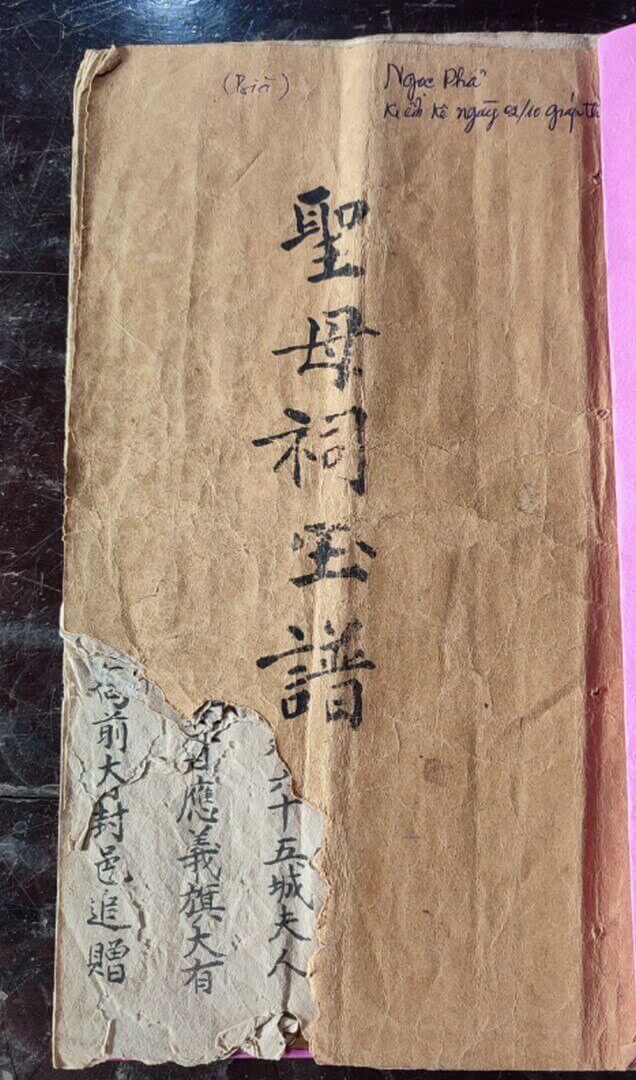 (Bìa)
Ngọc Phả
Kiểm kê ngày 22/10 giáp th
聖母祠玉譜
六十五城夫人
應義旗大有
前大封邑追贈